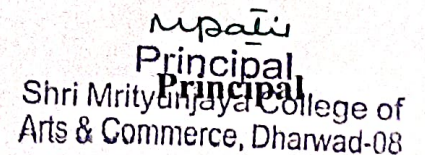 Principal
Principal
Shri Mrityunjaya College of
Arts & Commerce, Dharwad-08